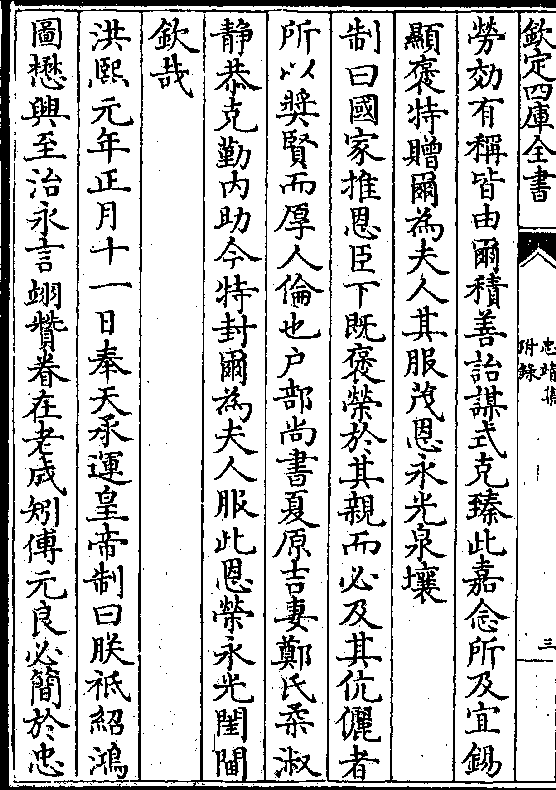 欽定四庫全書
忠靖集
附録
三
勞効有稱皆由爾積善詒謀式克臻此嘉念所及宜錫
顯褒特贈爾為夫人其服茂恩永光泉壤
制曰國家推恩臣下既褒榮於其親而必及其伉儷者
所以奬賢而厚人倫也户部尚書夏原吉妻鄭氏柔淑
静恭克勤内助今特封爾為夫人服此恩榮永光閨閫
欽哉
洪熙元年正月十一日奉天承運皇帝制曰朕祗紹鴻
圖懋興至治永言翊贊眷在老成矧傅元良必簡於忠